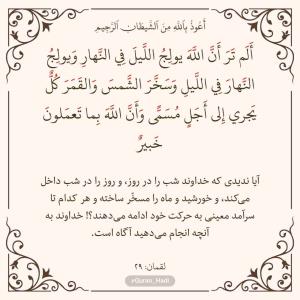 أَعُوذُ بِٱللَّهِ مِنَ ٱلشَّيطَانِ ٱلرَّجِيمِ
أَلَم تَرَ أَنَّ اللَّهَ يولِجُ اللَّيلَ فِي النَّهارِ وَيولِجُ
النَّهارَ فِي اللَّيلِ وَسَخَّرَ الشَّمسَ وَالقَمَرَ كُلٌّ
يَجري إِلى أَجَلٍ مُسَمًّى وَأَنَّ اللَّهَ بِما تَعمَلونَ
خَبيرٌ
آیا ندیدی که خداوند شب را در روز، و روز را در شب داخل
می‌کند، و خورشید و ماه را مسخّر ساخته و هر کدام تا
سرآمد معینی به حرکت خود ادامه می‌دهند؟! خداوند به
آنچه انجام می‌دهید آگاه است.
لقمان: ۲۹
@Quran_Hadi